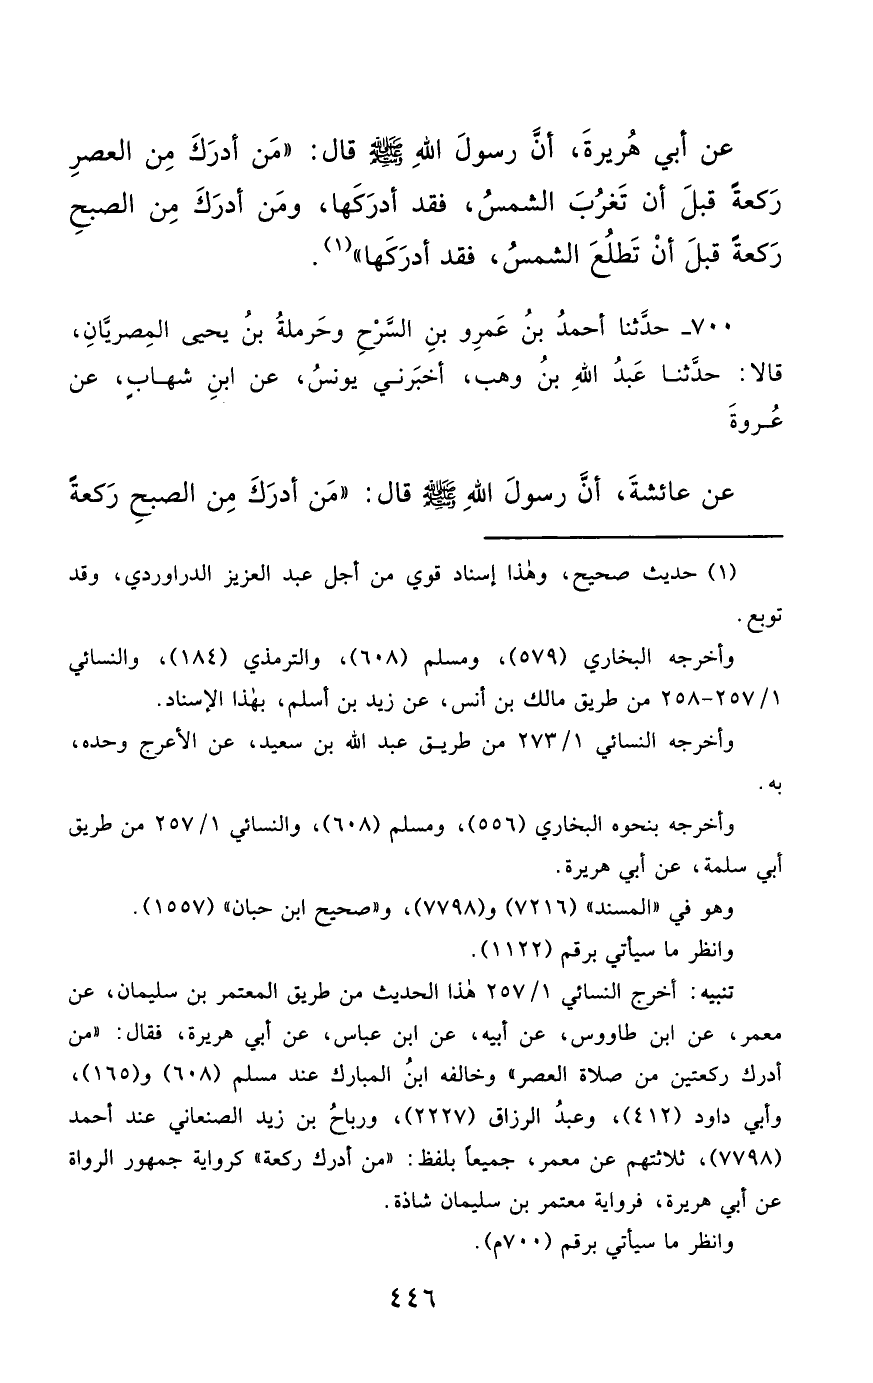 عن أبي هُريرةَ، أنَّ رسولَ اللهِ ﷺ قال: «مَن أدرَكَ مِن العصرِ
رَكعةً قبلَ أن تَغرُبَ الشمسُ، فقد أدرَكَها، ومَن أدرَكَ مِن الصبحِ
رَكعةً قبلَ أنْ تَطلُعَ الشمسُ، فقد أدرَكَها»(١).
٧٠٠ـ حدَّثنا أحمدُ بنُ عَمرِو بنِ السَّرْحِ وحَرملةُ بنُ يحيى المِصريَّانِ،
قالا: حدَّثنا عَبدُ اللهِ بنُ وهب، أخبَرني يونسُ، عن ابنِ شهابٍ، عن
عُروةَ
عن عائشةَ، أنَّ رسولَ اللهِ ﷺ قال: «مَن أدرَكَ مِن الصبحِ رَكعةً
(١) حديث صحيح، وهٰذا إسناد قوي من أجل عبد العزيز الدراوردي، وقد
توبع.
وأخرجه البخاري (٥٧٩)، ومسلم (٦٠٨)، والترمذي (١٨٤)، والنسائي
١/ ٢٥٧-٢٥٨ من طريق مالك بن أنس، عن زيد بن أسلم، بهٰذا الإسناد.
وأخرجه النسائي ١/ ٢٧٣ من طريق عبد الله بن سعيد، عن الأعرج وحده،
به.
وأخرجه بنحوه البخاري (٥٥٦)، ومسلم (٦٠٨)، والنسائي ١/ ٢٥٧ من طريق
أبي سلمة، عن أبي هريرة.
وهو في «المسند» (٧٢١٦) و(٧٧٩٨)، و«صحيح ابن حبان» (١٥٥٧).
وانظر ما سيأتي برقم (١١٢٢).
تنبيه: أخرج النسائي ١/ ٢٥٧ هٰذا الحديث من طريق المعتمر بن سليمان، عن
معمر، عن ابن طاووس، عن أبيه، عن ابن عباس، عن أبي هريرة، فقال: «من
أدرك ركعتين من صلاة العصر» وخالفه ابنُ المبارك عند مسلم (٦٠٨) و(١٦٥)،
وأبي داود (٤١٢)، وعبدُ الرزاق (٢٢٢٧)، ورباحُ بن زيد الصنعاني عند أحمد
(٧٧٩٨)، ثلاثتهم عن معمر، جميعاً بلفظ: «من أدرك ركعة» كرواية جمهور الرواة
عن أبي هريرة، فرواية معتمر بن سليمان شاذة.
وانظر ما سيأتي برقم (٧٠٠م).
٤٤٦